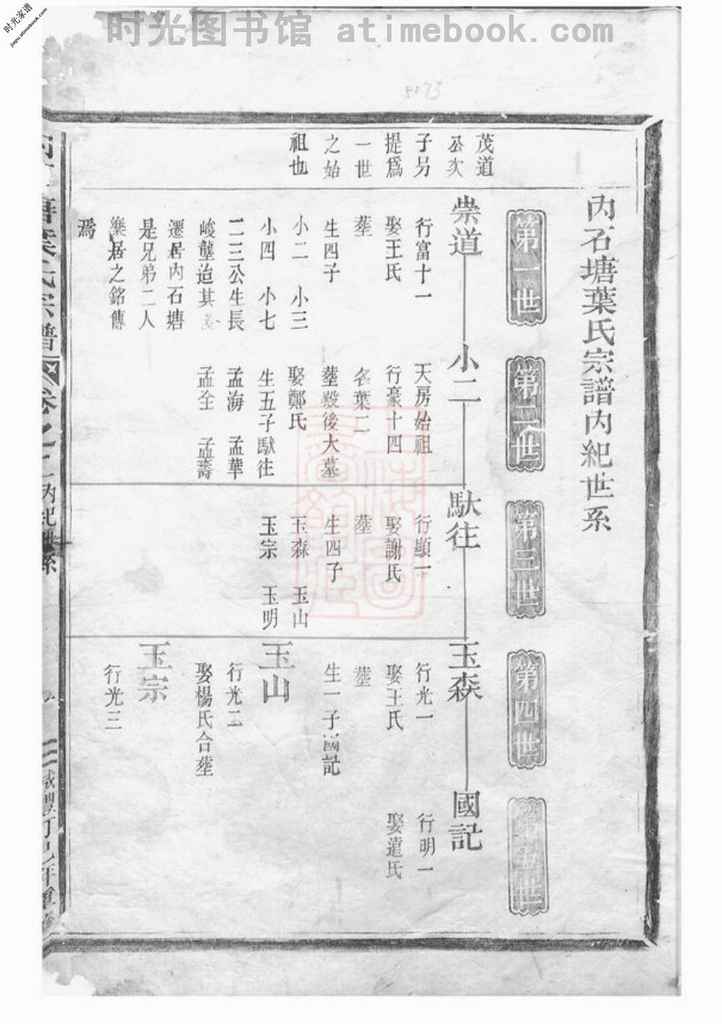 时光家谱
jiapu.atimebook.com
时光图书馆 atimebook.com
5073
内石塘葉氏宗譜内紀世系
第一世
第二世
第三世
第四世
第五世
茂道
公次
子另
提爲
一世
之始
祖也
崇道
行富十一
娶王氏
塟
生四子
小二 小三
小四 小七
二三公生長
峻壟迨其
遷居内石塘
是兄弟二人
樂居之銘傳
焉
小二
天房始祖
行豪十四
名葉二
塟殿後大墓
娶鄭氏
生五子馱往
孟海 孟華
孟全 孟壽
馱往
行顯一
娶謝氏
塟
生四子
玉森 玉山
玉宗 玉明
玉森
行光一
娶王氏
塟
生一子國記
玉山
行光二
娶楊氏合塟
玉宗
行光三
國記
行明一
娶氏
葉氏宗譜 卷之 内紀世系 二 咸豐丁巳年重修